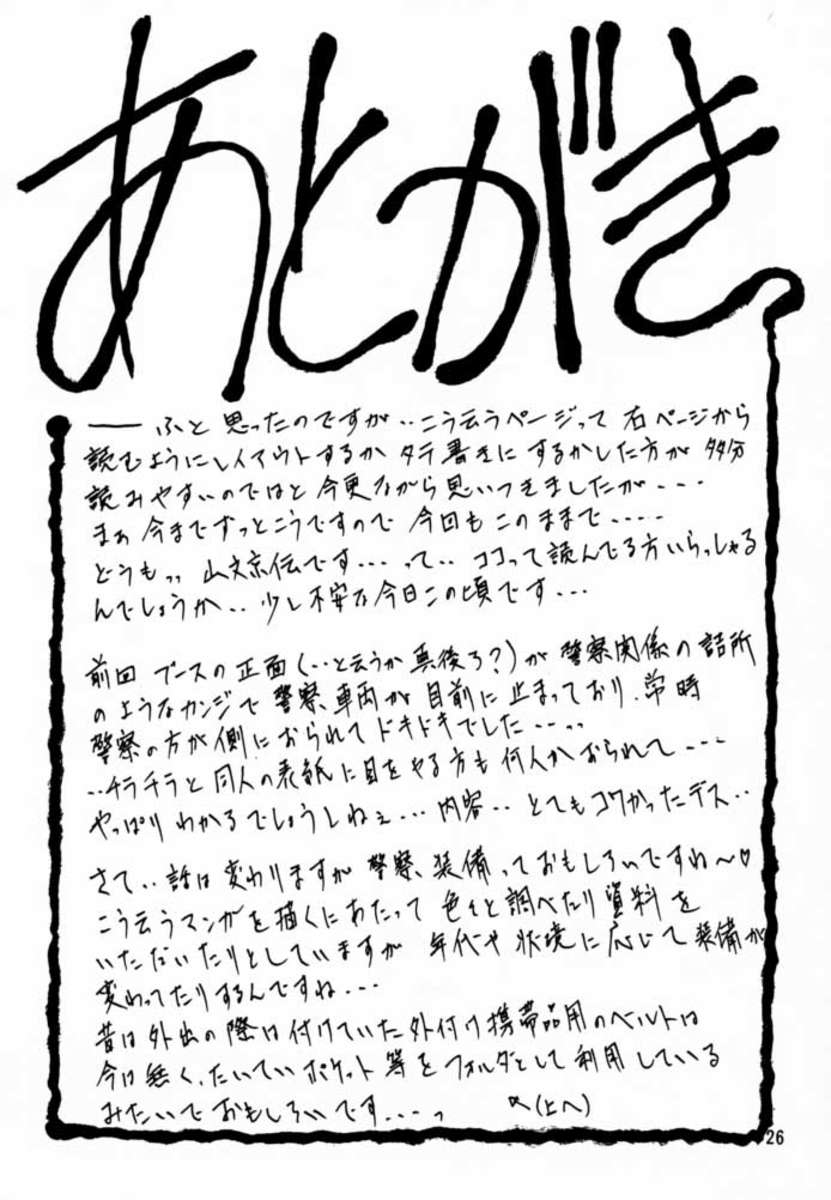 あとがき
── ふと思ったのですが‥こう云うページって 右ページから
読むようにレイアウトするか タテ書きに するかした方が 多分
読みやすいのではと 今更ながら思いつきましたが・・・
まぁ 今までずっとこうですので 今回も このままで・・・・・
どうもっっ 山文京伝です・・・って‥ ココって読んでる方いらっしゃる
んでしょうか‥ 少し不安な今日この頃です・・・
前回 ブースの正面(‥と云うか真後ろ?)が 警察関係の詰所
のようなカンジで 警察車両が 目前に止まっており、常時
警察の方が側に おられて ドキドキでした・・・‥
‥チラチラと 同人の表紙に目をやる方も何人かおられて・・・
やっぱり わかるでしょうしねぇ・・・内容‥ とてもコワかったデス‥
さて‥話は変わりますが 警察装備っておもしろいですね〜♡
こう云うマンガを描くにあたって 色々と調べたり資料を
いただいたりとしていますが 年代や状境に応じて装備が
変わってたりするんですね・・・
昔は外出の際は付けていた外付け携帯品用のベルトは
今は無く、たいていポケット等をフォルダとして利用している
みたいでおもしろいです・・・・っ (上へ)
26